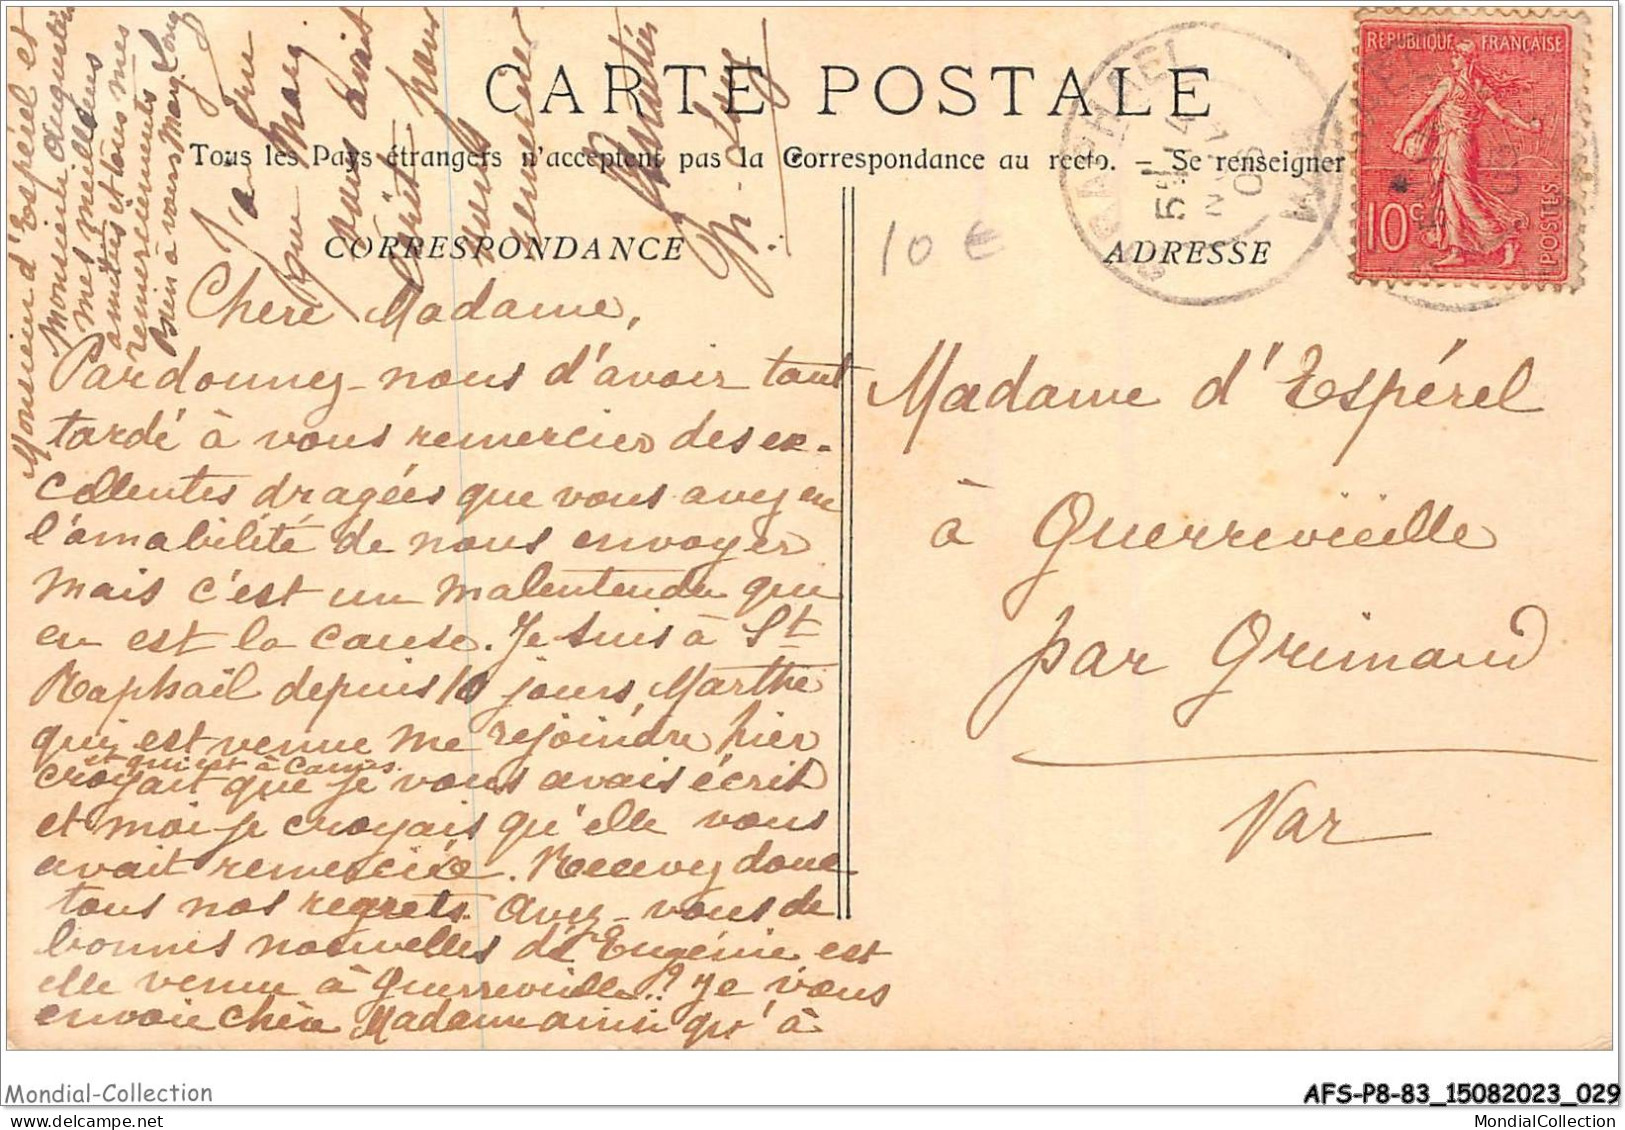 CARTE POSTALE
Tous les Pays étrangers n'acceptent pas la Correspondance au recto. - Se renseigner
CORRESPONDANCE
ADRESSE
REPUBLIQUE FRANÇAISE
10c
POSTES
10 €
Chere Madame,
Pardonnez-nous d'avoir tant
tardé à vous remercier des ex-
cellentes dragées que vous avez eu
l'amabilité de nous envoyer
mais c'est un malentendu qui
en est la cause. Je suis à St
Raphaël depuis 10 jours, Marthe
qui est venue me rejoindre hier
et qui est à
croyait que je vous avais écrit
et moi je croyais qu'elle vous
avait remerciée. Recevez donc
tous nos regrets. Avez-vous de
bonnes nouvelles de Eugénie est
elle venue à Guerrevieille? Je vous
envoie chère Madame ainsi qu'à
Monsieur d'Espérel et
Monsieur Augustin
mes meilleurs
amitiés et tous mes
remerciements
Bien à vous
J'ai
que Marg
vous avait
écrit pour
vous
remercier
Madame d'Espérel
à Guerrevieille
par Grimaud
Var
Mondial-Collection
AFS-P8-83_15082023_029
MondialCollection